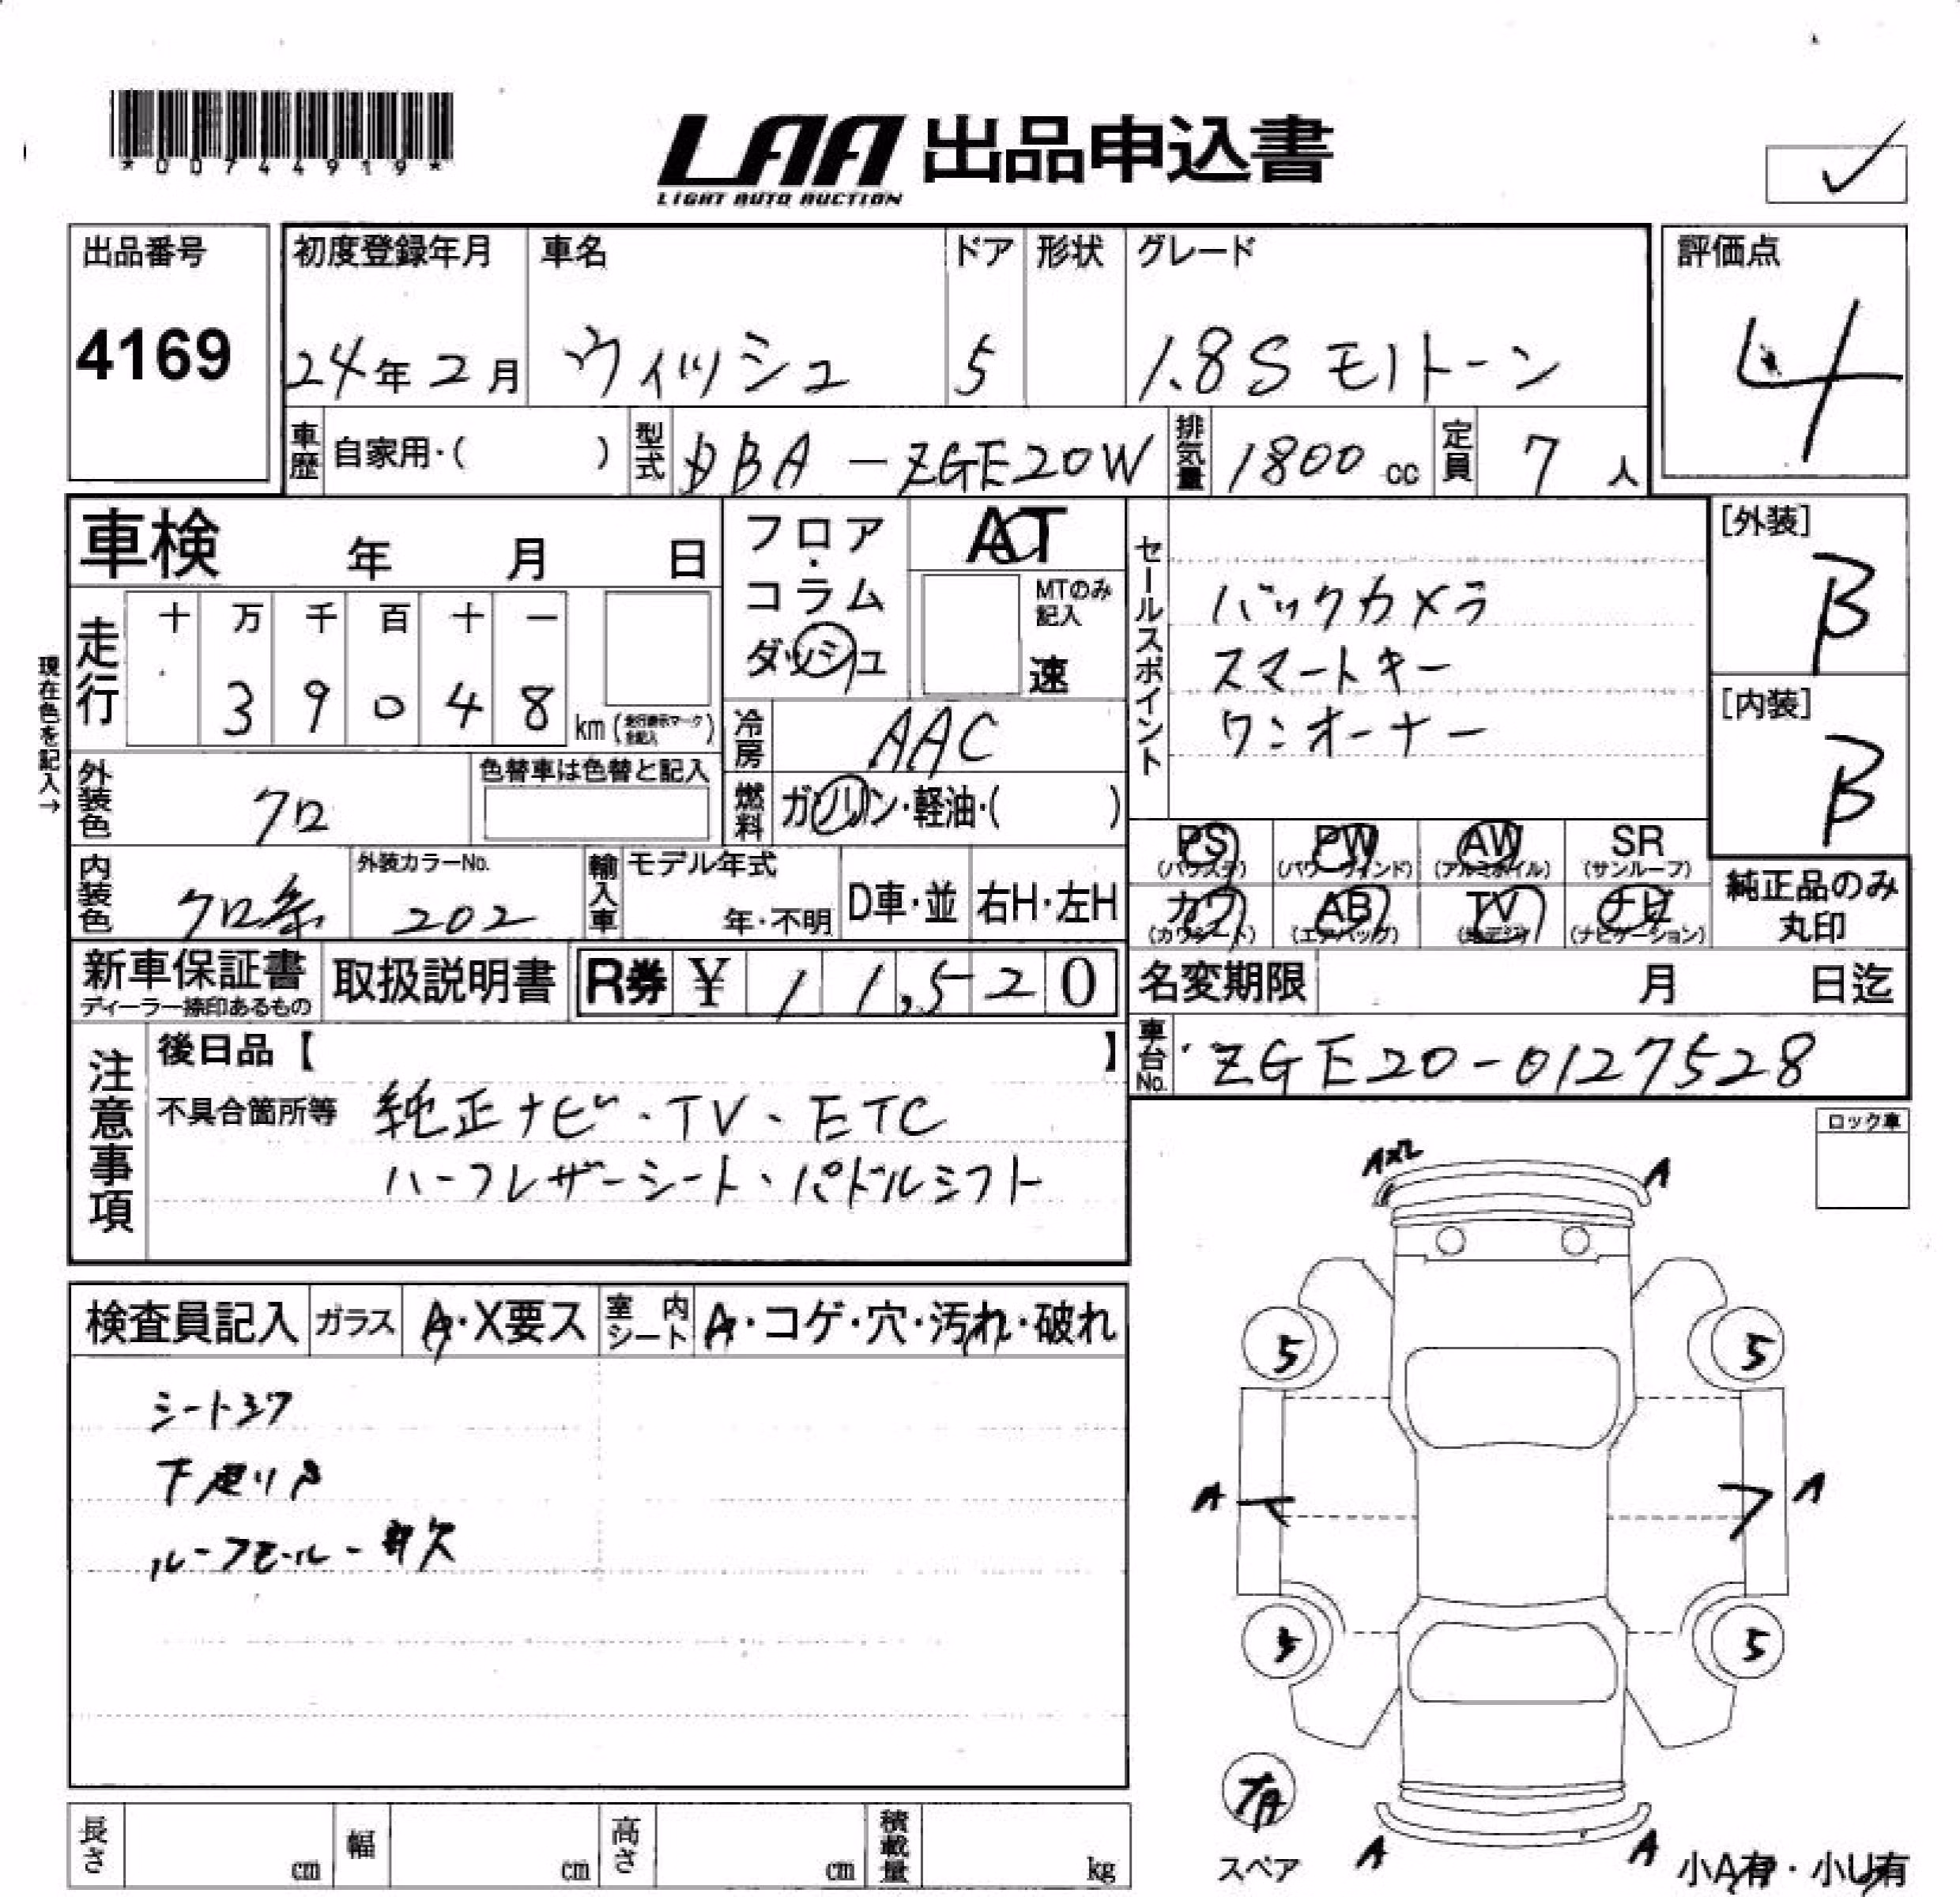 *00744919*
LAA 出品申込書
LIGHT AUTO AUCTION
出品番号
4169
初度登録年月
24年2月
車名
ウィッシュ
ドア
5
形状
グレード
1.8S モノトーン
評価点
4
車歴
自家用・( )
型式
DBA-ZGE20W
排気量
1800 cc
定員
7 人
車検 年 月 日
フロア・コラム
ダッシュ
AT
MTのみ記入
速
セールスポイント
バックカメラ
スマートキー
ワンオーナー
[外装]
B
[内装]
B
現在色を記入→
走行
十 万 千 百 十 一
3 9 0 4 8
km (走行表示マーク全記入)
冷房
AAC
外装色
クロ
色替車は色替と記入
燃料
ガソリン・軽油・( )
内装色
クロ系
外装カラーNo.
202
輸入車
モデル年式
年・不明
D車・並
右H・左H
PS
(パワステ)
PW
(パワーウィンド)
AW
(アルミホイル)
SR
(サンルーフ)
カワ
(カワシート)
AB
(エアバッグ)
TV
(地デジ)
ナビ
(ナビゲーション)
純正品のみ
丸印
新車保証書
ディーラー捺印あるもの
取扱説明書
R券 ¥ 11,520
名変期限 月 日迄
車台No.
ZGE20-0127528
注意事項
後日品【 】
不具合箇所等
純正ナビ・TV、ETC
ハーフレザーシート、パドルシフト
ロック車
検査員記入
ガラス
A・X要ス
室内シート
A・コゲ・穴・汚れ・破れ
シートスワ
下廻りサ
ルーフモール一部欠
AX2
A
5
5
A
A
5
有
スペア
A
A
小A有・小U有
長さ cm
幅 cm
高さ cm
積載量 kg